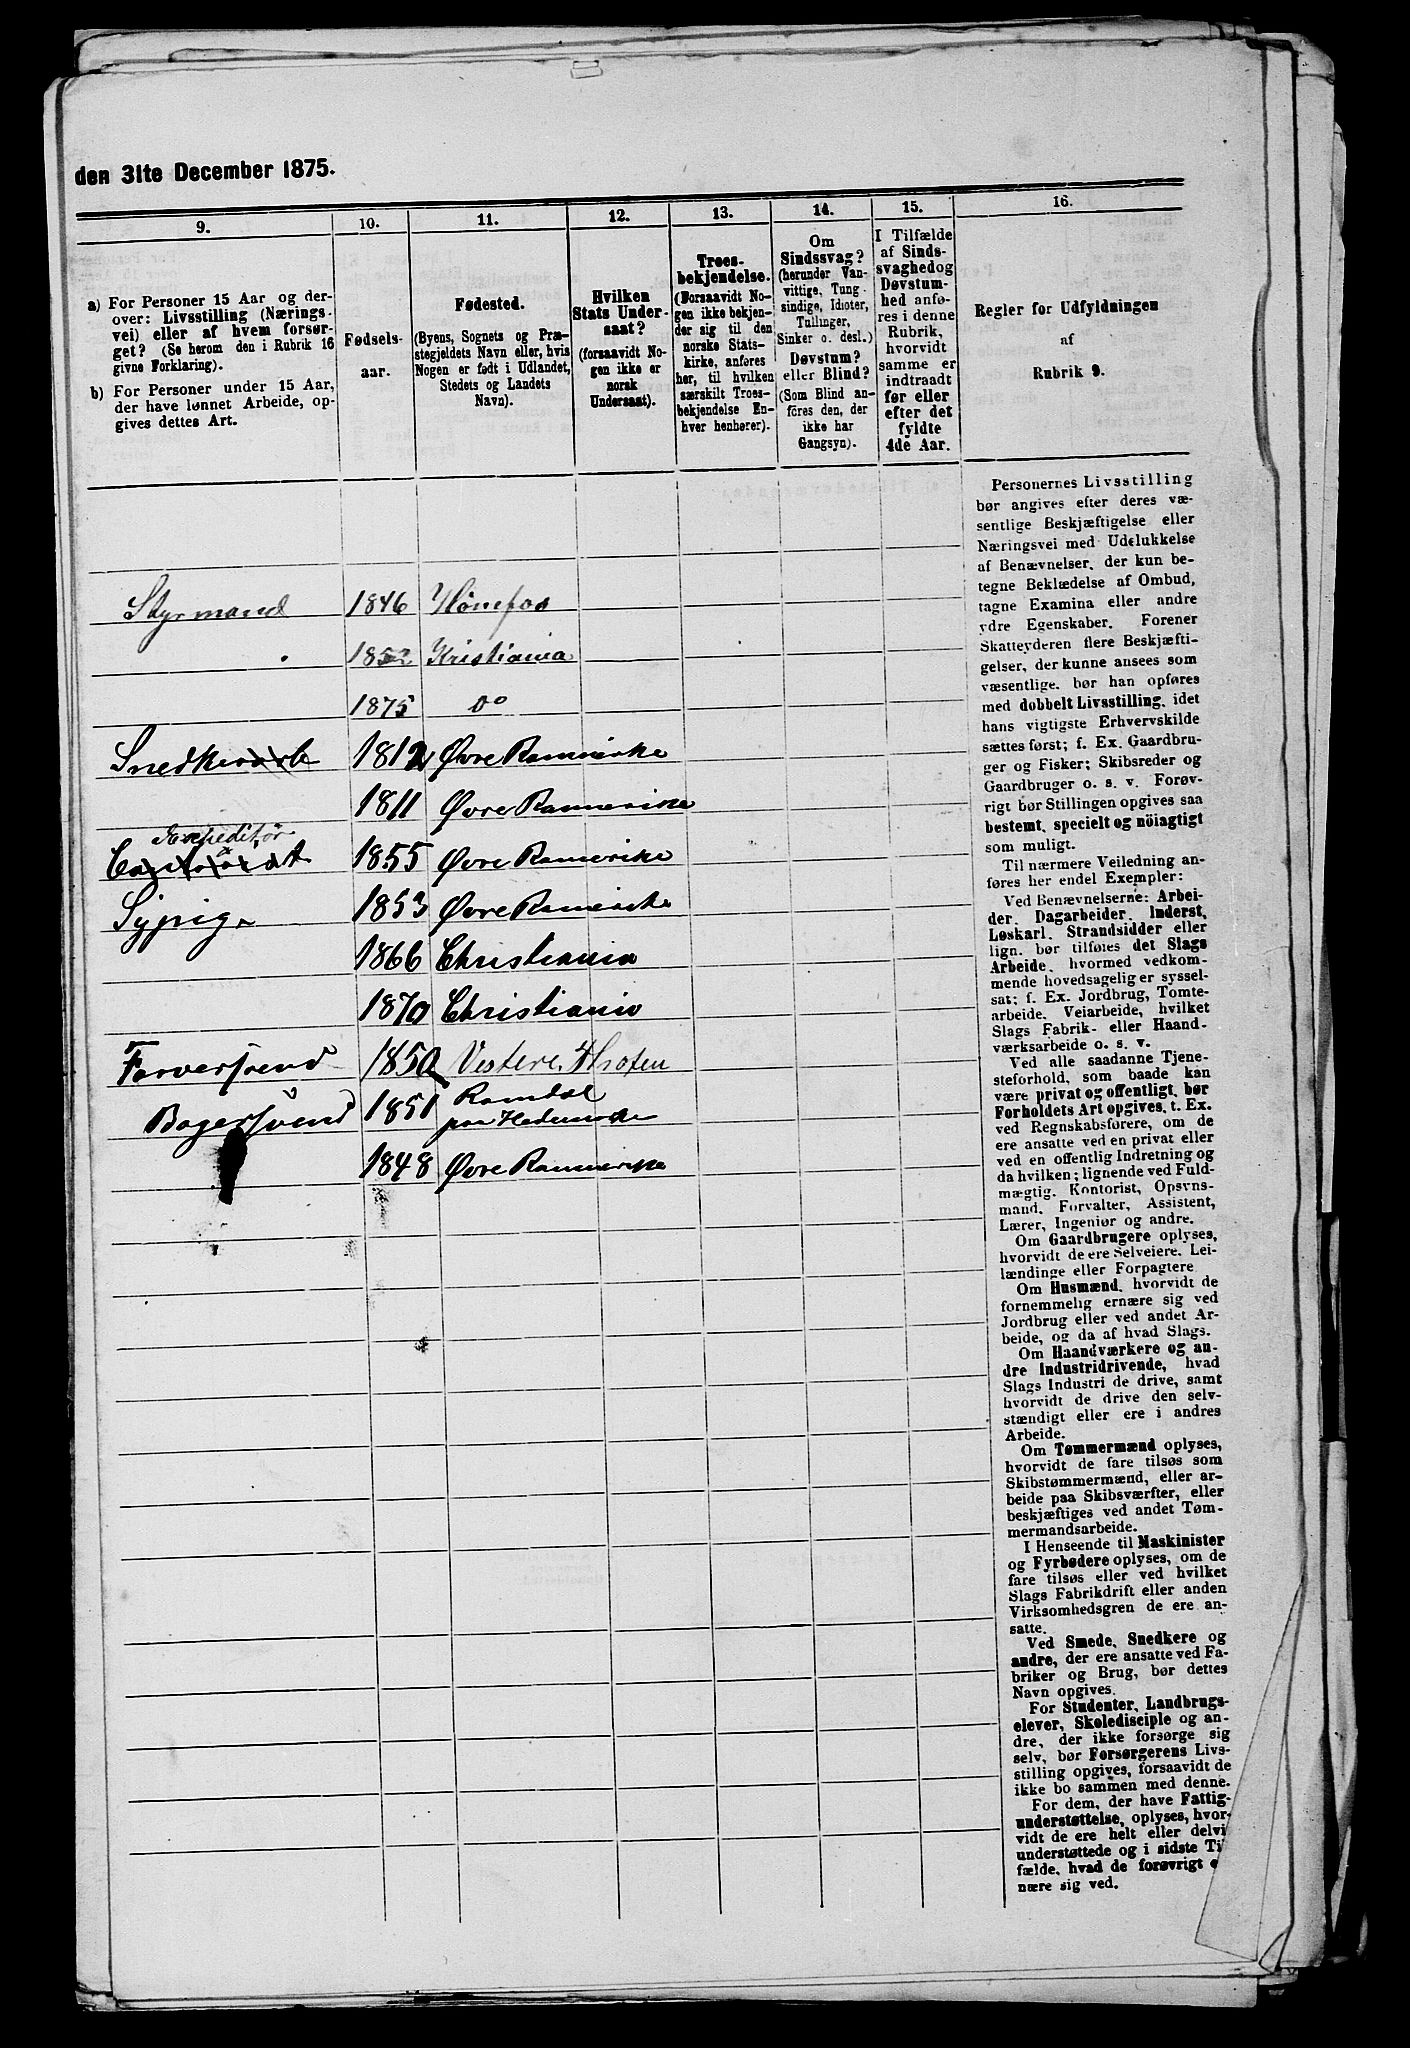 den 31te December 1875.
9.
a) For Personer 15 Aar og der-
over: Livsstilling (Nærings-
vei) eller af hvem forsør-
get? (Se herom den i Rubrik 16
givne Forklaring).
b) For Personer under 15 Aar,
der have lønnet Arbeide, op-
gives dettes Art.
10.
Fødsels-
aar.
11.
Fødested.
(Byens, Sognets og Præ-
stegjeldets Navn eller, hvis
Nogen er født i Udlandet,
Stedets og Landets
Navn).
12.
Hvilken
Stats Under-
saat?
(forsaavidt No-
gen ikke er
norsk
Undersaat).
13.
Troes-
bekjendelse.
(Forsaavidt No-
gen ikke bekjen-
der sig til den
norske Stats-
kirke, anføres
her, til hvilken
særskilt Troes-
bekjendelse En-
hver henhører).
14.
Om
Sindssvag?
(herunder Van-
vittige, Tung-
sindige, Idioter,
Tullinger,
Sinker o. desl.)
Døvstum?
eller Blind?
(Som Blind an-
føres den, der
ikke har
Gangsyn).
15.
I Tilfælde
af Sinds-
svaghed og
Døvstum-
hed anfø-
res i denne
Rubrik,
hvorvidt
samme er
indtraadt
før eller
efter det
fyldte
4de Aar.
16.
Regler for Udfyldningen
af
Rubrik 9.
Styrmand 1846 Hönefos
1852 Kristiania
1875 do
Snedker 1812 Øvre Romerike
1811 Øvre Romerike
Expeditör
1855 Øvre Romerike
Sypige 1853 Øvre Romerike
1866 Christiania
1870 Christiania
Farversvend 1850 Vestere Thoten
Bagersvend 1851 Romdal
paa Hedemarke
1848 Øvre Romerike
Personernes Livsstilling
bør angives efter deres væ-
sentlige Beskjæftigelse eller
Næringsvei med Udelukkelse
af Benævnelser, der kun be-
tegne Beklædelse af Ombud,
tagne Examina eller andre
ydre Egenskaber. Forener
Skatteyderen flere Beskjæfti-
gelser, der kunne ansees som
væsentlige, bør han opføres
med dobbelt Livsstilling, idet
hans vigtigste Erhvervskilde
sættes først; f. Ex. Gaardbru-
ger og Fisker; Skibsreder og
Gaardbruger o. s. v. Forøv-
rigt bør Stillingen opgives saa
bestemt, specielt og nöiagtigt
som muligt.
Til nærmere Veiledning an-
føres her endel Exempler:
Ved Benævnelserne: Arbei-
der, Dagarbeider, Inderst,
Løskarl, Strandsidder eller
lign. bør tilføies det Slags
Arbeide, hvormed vedkom-
mende hovedsagelig er syssel-
sat; f. Ex. Jordbrug, Tomte-
arbeide, Veiarbeide, hvilket
Slags Fabrik- eller Haand-
værksarbeide o. s. v.
Ved alle saadanne Tjene-
steforhold, som baade kan
være privat og offentligt, bør
Forholdets Art opgives, t. Ex.
ved Regnskabsførere, om de
ere ansatte ved en privat eller
ved en offentlig Indretning og
da hvilken; lignende ved Fuld-
mægtig, Kontorist, Opsyns-
mand, Forvalter, Assistent,
Lærer, Ingeniør og andre.
Om Gaardbrugere oplyses,
hvorvidt de ere Selveiere, Lei-
lændinge eller Forpagtere
Om Husmænd, hvorvidt de
fornemmelig ernære sig ved
Jordbrug eller ved andet Ar-
beide, og da af hvad Slags.
Om Haandværkere og an-
dre industridrivende, hvad
Slags Industri de drive, samt
hvorvidt de drive den selv-
stændigt eller ere i andres
Arbeide.
Om Tømmermænd oplyses,
hvorvidt de fare tilsøs som
Skibstømmermænd, eller ar-
beide paa Skibsværfter, eller
beskjæftiges ved andet Tøm-
mermandsarbeide.
I Henseende til Maskinister
og Fyrbødere oplyses, om de
fare tilsøs eller ved hvilket
Slags Fabrikdrift eller anden
Virksomhedsgren de ere an-
satte.
Ved Smede, Snedkere og
andre, der ere ansatte ved Fa-
briker og Brug, bør dettes
Navn opgives.
For Studenter, Landbrugs-
elever, Skoledisciple og an-
dre, der ikke forsørge sig
selv, bør Forsørgerens Livs-
stilling opgives, forsaavidt de
ikke bo sammen med denne.
For dem, der have Fattig-
understøttelse, oplyses, hvor-
vidt de ere helt eller delvi
understøttede og i sidste Ti
fælde, hvad de forøvrigt e
nære sig ved.